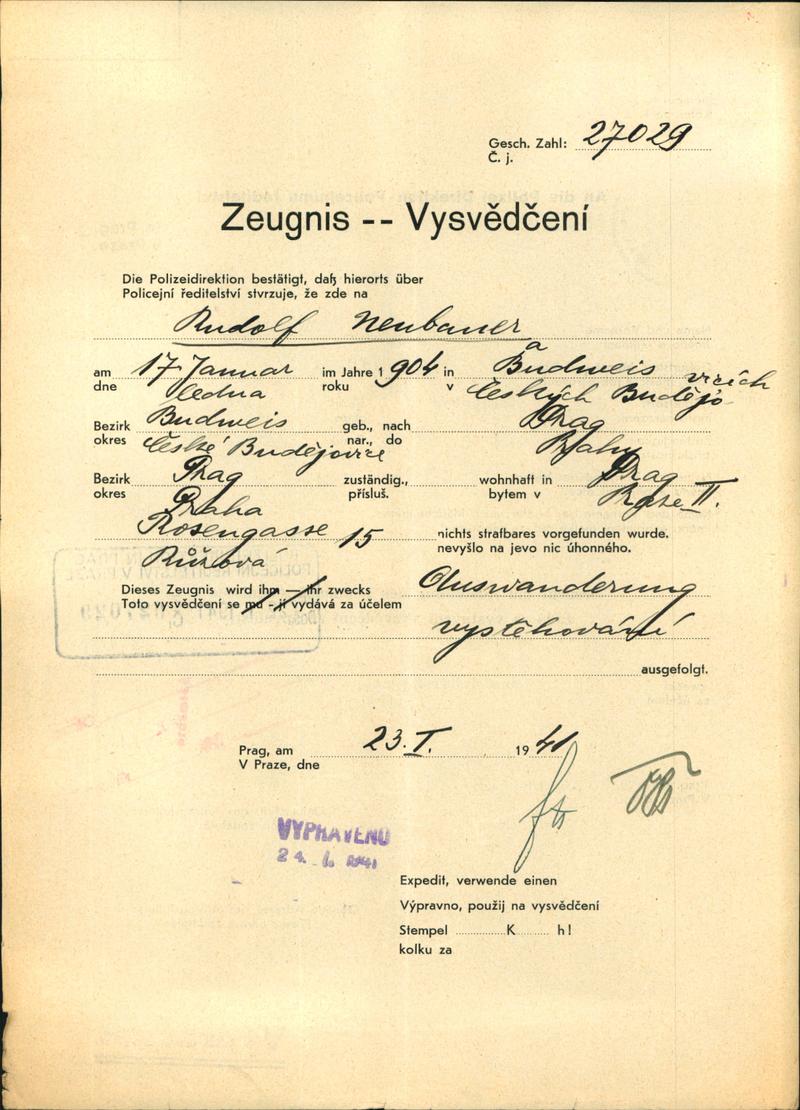 Gesch. Zahl: 27029
Č. j.
Zeugnis -- Vysvědčení
Die Polizeidirektion bestätigt, daß hierorts über
Policejní ředitelství stvrzuje, že zde na
Rudolf Neubauer
am 17 Januar im Jahre 1 904 in Budweis
dne ledna roku v Českých Budějovicích
Bezirk Budweis geb., nach Prag
okres České Budějovice nar., do Prahy
Bezirk Prag zuständig., wohnhaft in Prag
okres Praha přísluš. bytem v Praze II.
Rosengasse 15 nichts strafbares vorgefunden wurde.
Růžová nevyšlo na jevo nic úhonného.
Dieses Zeugnis wird ihm — ihr zwecks Auswanderung
Toto vysvědčení se mu - jí vydává za účelem
vystěhování
ausgefolgt.
Prag, am 23. I. 19 41
V Praze, dne
VYPRAVENO
24. I. 1941
Expedit, verwende einen
Výpravno, použij na vysvědčení
Stempel K h!
kolku za